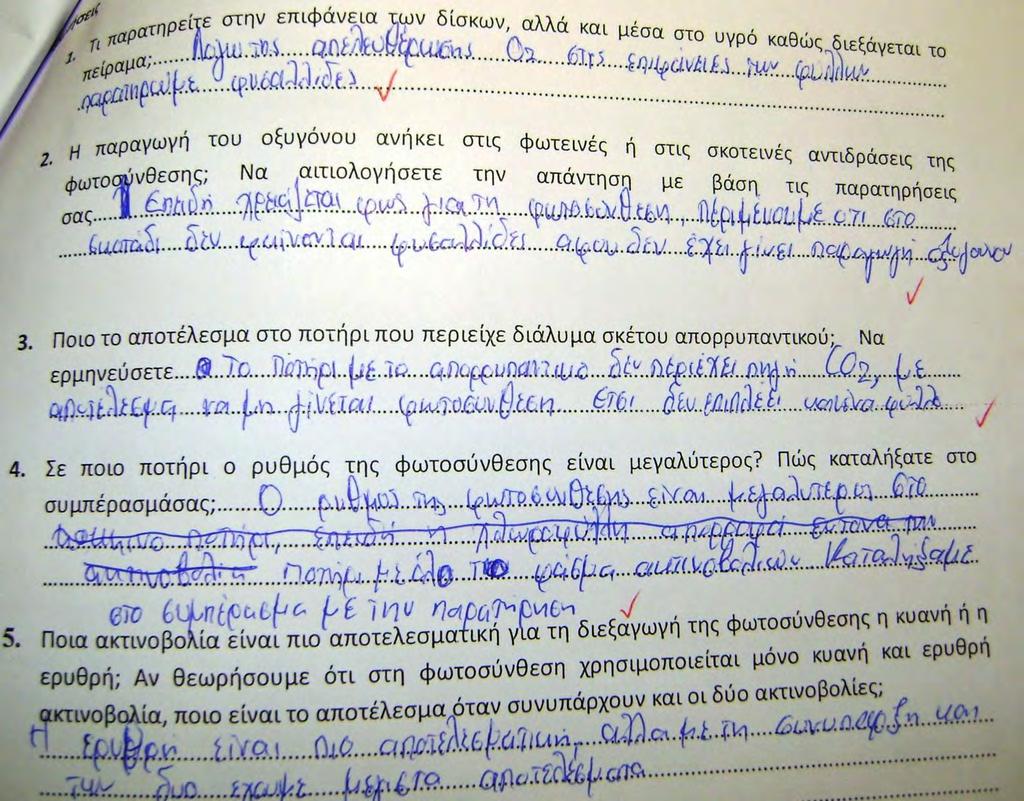 ήσεις
1. Τι παρατηρείτε στην επιφάνεια των δίσκων, αλλά και μέσα στο υγρό καθώς διεξάγεται το
πείραμα; Λόγω της απελευθέρωσης O2 στις επιφάνειες των φύλλων
παρατηρούμε φυσαλλίδες
2. Η παραγωγή του οξυγόνου ανήκει στις φωτεινές ή στις σκοτεινές αντιδράσεις της
φωτοσύνθεσης; Να αιτιολογήσετε την απάντηση με βάση τις παρατηρήσεις
σας. Επειδή χρειάζεται φως για τη φωτοσύνθεση, περιμένουμε ότι στο
σκοτάδι δεν φαίνονται φυσαλλίδες αφου δεν έχει γίνει παραγωγή οξυγόνου
3. Ποιο το αποτέλεσμα στο ποτήρι που περιείχε διάλυμα σκέτου απορρυπαντικού; Να
ερμηνεύσετε Το Ποτήρι με το απορρυπαντικό δεν περιέχει πηγή CO2, με
αποτέλεσμα να μη γίνεται φωτοσύνθεση ετσι δεν επιπλέει κανένα φύλλο
4. Σε ποιο ποτήρι ο ρυθμός της φωτοσύνθεσης είναι μεγαλύτερος? Πώς καταλήξατε στο
συμπέρασμάσας; Ο ρυθμος της φωτοσύνθεσης είναι μεγαλύτερος στο
ποτήρι, επειδή η χλωροφύλλη απορροφά έντονα την
ακτινοβολία ποτήρι με όλο το φάσμα ακτινοβολιών Καταλήξαμε
στο συμπέρασμα με την παρατήρηση
5. Ποια ακτινοβολία είναι πιο αποτελεσματική για τη διεξαγωγή της φωτοσύνθεσης η κυανή ή η
ερυθρή; Αν θεωρήσουμε ότι στη φωτοσύνθεση χρησιμοποιείται μόνο κυανή και ερυθρή
ακτινοβολία, ποιο είναι το αποτέλεσμα όταν συνυπάρχουν και οι δύο ακτινοβολίες;
Η ερυθρή είναι πιο αποτελεσματική, αλλα με τη συνυπαρξη και
των δυο εχουμε μεγιστα αποτελέσματα